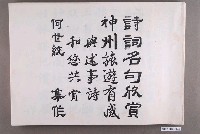 詩詞名句欣賞
神州旅遊有感
與述事詩
和您共賞
何世統